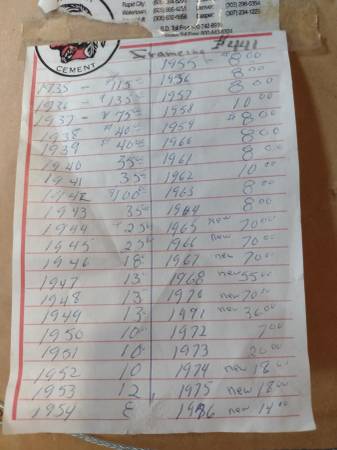 Rapid City:
Watertown:
(303) 296-0354
(307) 234-122
CEMENT
$441
1935 - 115
1936 - $135
1937 - $75
1938 $40
1939 $40
1940 35
1941 35
$100
1943 35
1944 25
1945 25
1946 18
1947 13
1948 13
1949 13
1950 10
1951 10
1952 10
1953 12
1954 8
1955 $8.00
1956 8.00
1957 8.00
1958 10.00
1959 $8.00
1960 8.00
1961 8.00
1962 10.00
1963 8.00
1964 8.00
1965 new 70.00
1966 new 70.00
1967 new 70.00
1968 new 55.00
1970 new 70.00
1971 new 36.00
1972 7.00
1973 20.00
1974 new 18.00
1975 new 18.00
1976 new 14.00